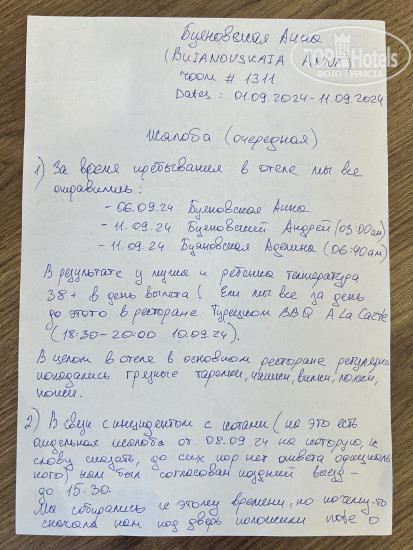 Буяновская Анна
(BUIANOVSKAIA ANNA)
room # 1311
Dates: 01.09.2024-11.09.2024
TopHotels
ФОТО ТУРИСТА
Жалоба (очередная)
1) За время пребывания в отеле мы все
отравились:
- 06.09.24 Буяновская Анна
- 11.09.24 Буяновский Андрей (03:00am)
- 11.09.24 Буяновская Аделина (06:40am)
В результате у мужа и ребенка температура
38+ в день вылета! Ели мы все за день
до этого в ресторане Турецком BBQ A La Carte
(18:30-20:00 10.09.24).
В целом в отеле в основном ресторане регулярно
попадались грязные тарелки, чашки, вилки, ложки,
ножи.
2) В связи с инцидентом с котами (на это есть
отдельная жалоба от 08.09.24 на которую, к
слову сказать, до сих пор нет ответа официаль
ного) нам был согласован поздний выезд –
до 15-30.
Мы собирались к этому времени, но почему-то
сначала нам под дверь положили note о